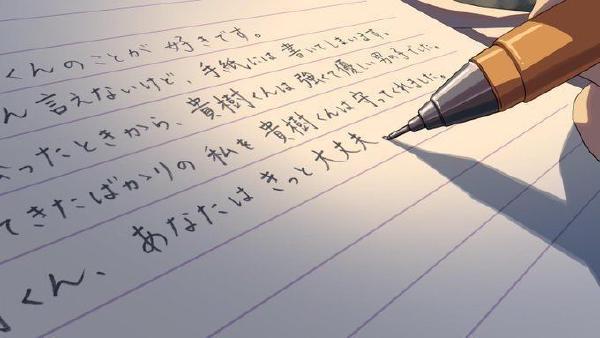 くんのことが 好きです。
ん 言えないけど、手紙には 書いてしまいます。
ったときから、貴樹くんは 強くて優しい男の子でした。
てきたばかりの 私を 貴樹くんは守ってくれました。
くん、あなたは きっと大丈夫